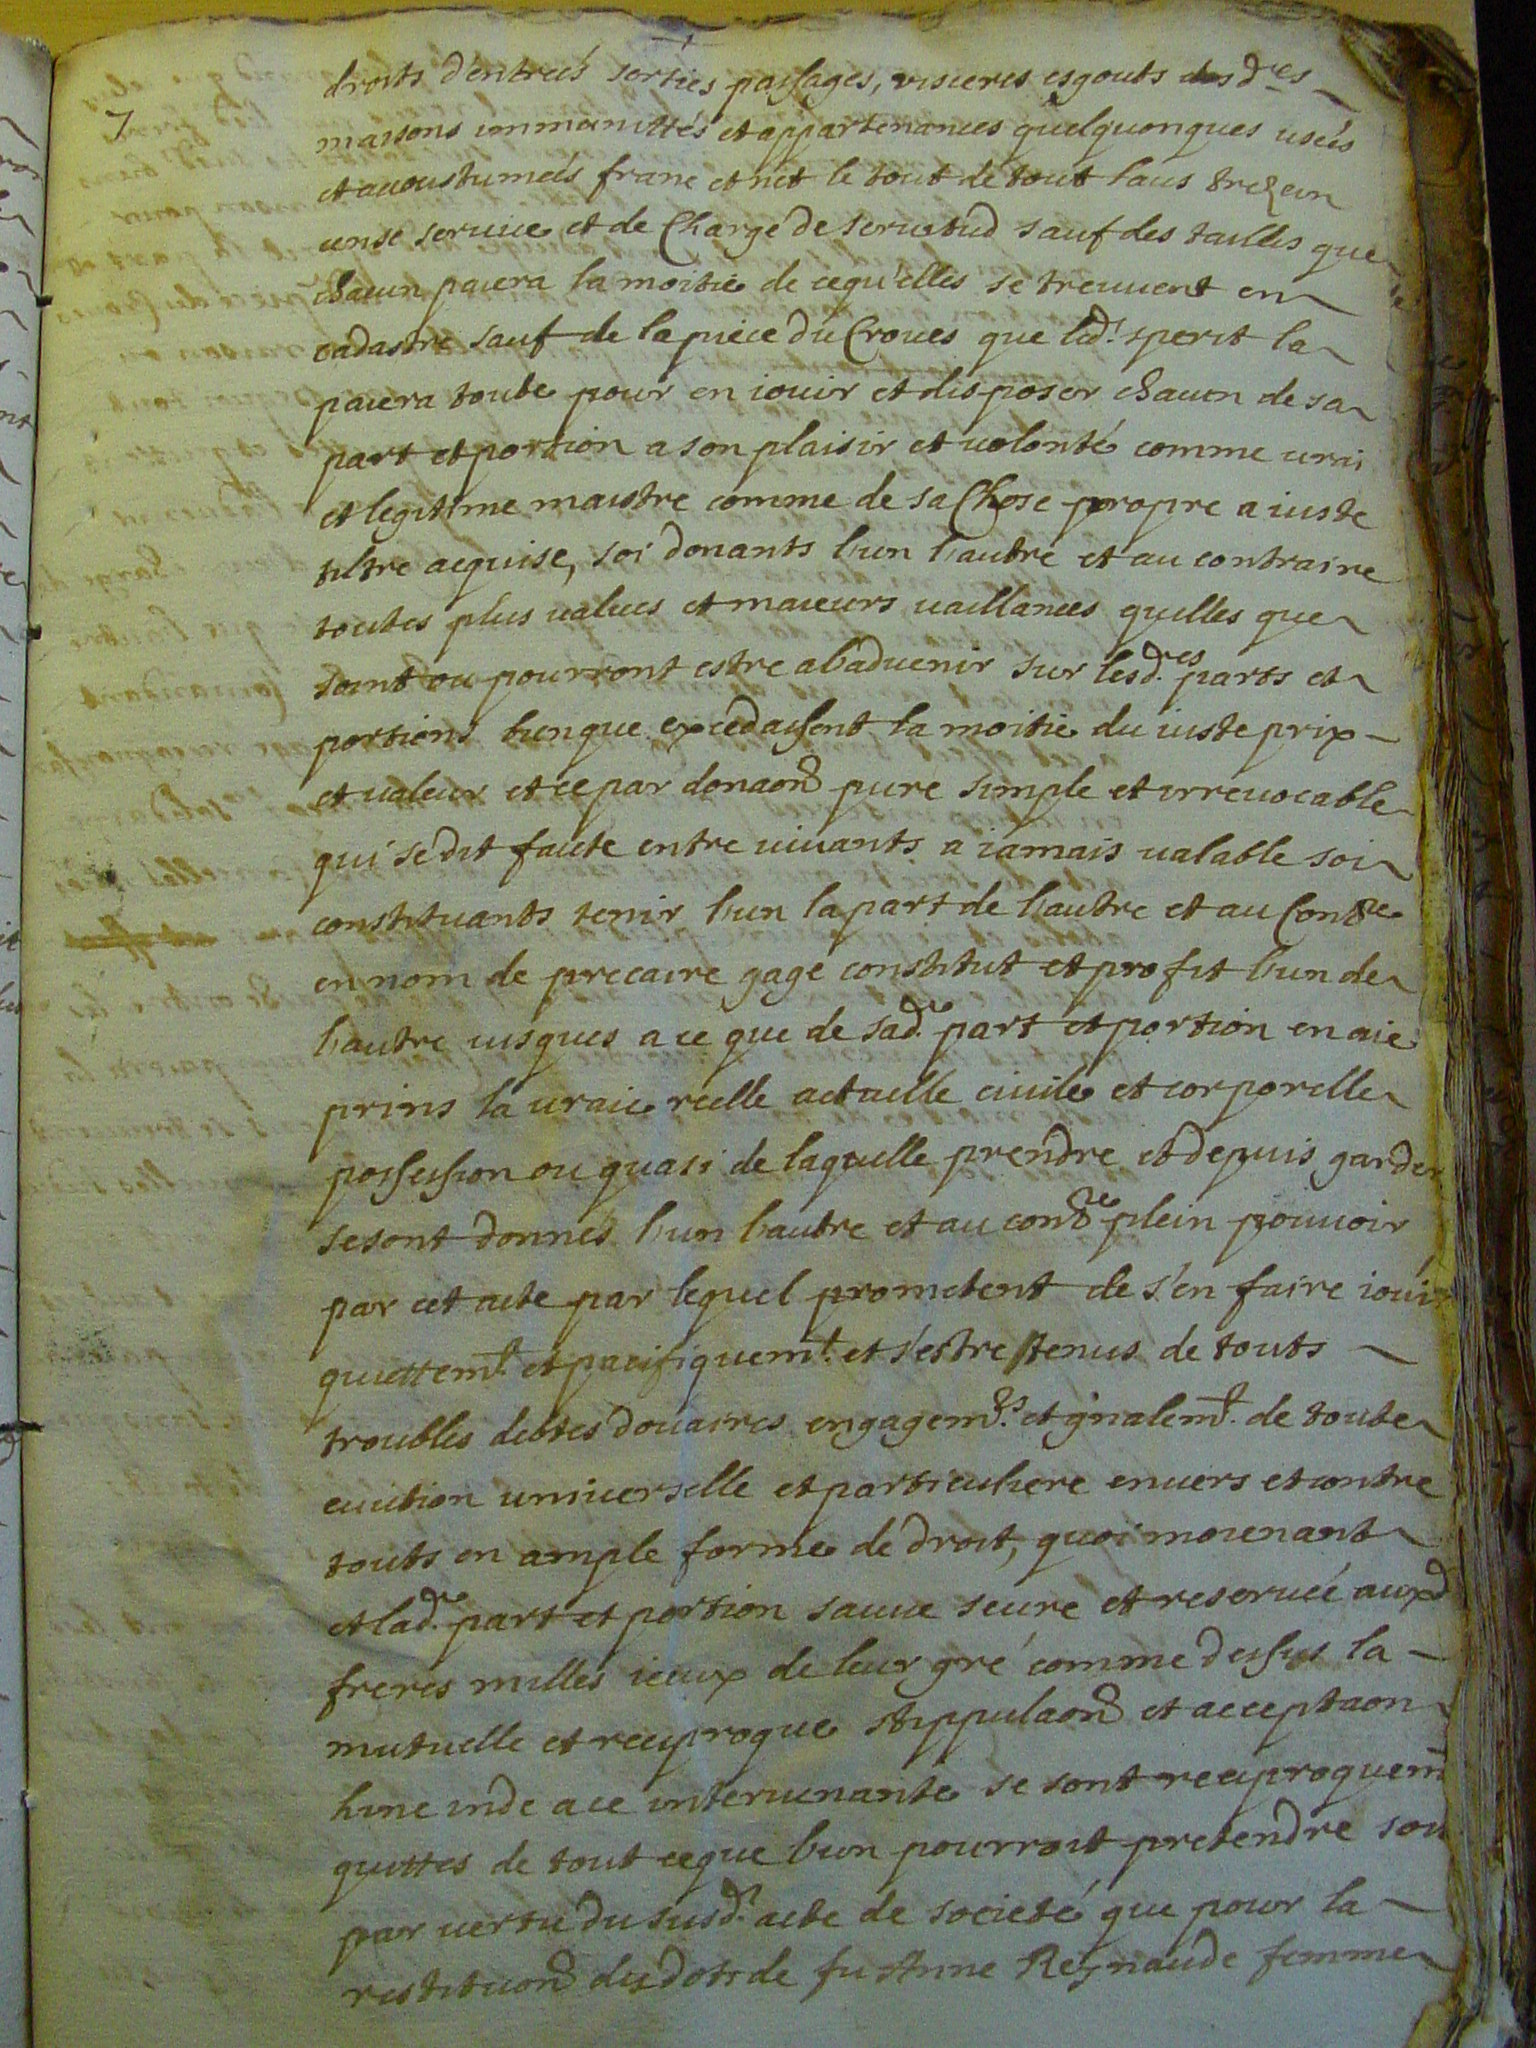 7
droits d'entrées sorties passages, visieres esgouts desd.es
maisons commanittés et appartenances quelquonques usées
et accoustumées franc et net le tout de tout laus trezein
cense service et de Charge de servitud sauf des tailles que
chacun paiera la moitie de cequ'elles se treuvent en
cadastre sauf de la piece du Croues que led.t sperit la
paiera toute pour en iouir et disposer chacun de sa
part et portion a son plaisir et volonté comme vrai
et legitime maistre comme de sa Chose propre a iuste
tiltre acquise, soi donants l'un l'autre et au contraire
toutes plus values et maieurs vaillances quelles que
soint ou pourront estre a l'advenir sur lesd.es parts et
portions bienque excedassent la moitie du iuste prix
et valeur et ce par donaon pure simple et irrevocable
qui se dit faicte entre vivants a iamais valable soi
constituants tenir l'un la part de l'autre et au Con.re
en nom de precaire gage constitut et profit l'un de
l'autre iusques a ce que de sad.e part et portion en aie
prins la vraie reelle actuelle civile et corporelle
possession ou quasi de laquelle prendre et depuis garder
se sont donnés l'un l'autre et au con.re plein pouvoir
par cet acte par lequel prometent de s'en faire iouir
quiettem.t et pacifiquem.t et s'estre tenus de touts
troubles debtes douaires engagem.ts et gnalem.t de toute
eviction universelle et particuliere envers et contre
touts en ample forme de droit, quoi moienant
et lad.e part et portion sauve seure et reservée auxd
freres milles iceux de leur gré comme dessus la
mutuelle et reciproque stippulaon et acceptaon
hinc inde a ce intervenante se sont reciproquem
quittes de tout ceque l'un pourroit pretendre soit
par vertu du susd.t acte de societé que pour la
restituon des dots de fu Anne Reynaude femme